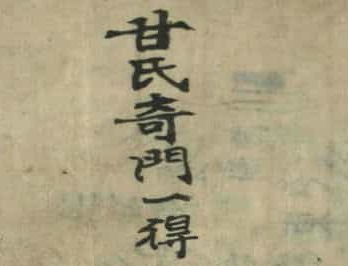 甘氏奇門一得